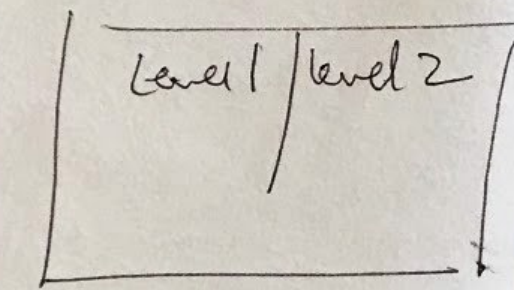 Level 1 level 2